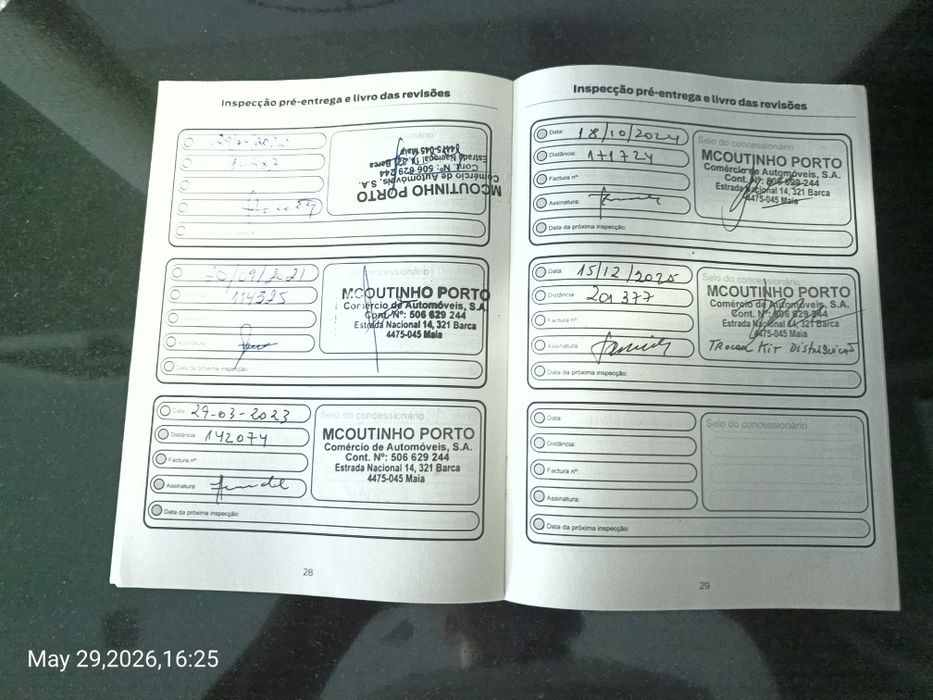 Inspecção pré-entrega e livro das revisões
MCOUTINHO PORTO
Comércio de Automóveis, S.A.
Cont. Nº: 506 629 244
Estrada Nacional 14, 321 Barca
4475-045 Maia
/09/2021
114325
MCOUTINHO PORTO
Comércio de Automóveis, S.A.
Cont. Nº: 506 629 244
Estrada Nacional 14, 321 Barca
4475-045 Maia
Data da próxima inspecção:
Data: 29-03-2023
Distância: 142074
Factura nº:
Assinatura:
Data da próxima inspecção:
Selo do concessionário
MCOUTINHO PORTO
Comércio de Automóveis, S.A.
Cont. Nº: 506 629 244
Estrada Nacional 14, 321 Barca
4475-045 Maia
28
Inspecção pré-entrega e livro das revisões
Data: 18/10/2024
Distância: 171724
Factura nº:
Assinatura:
Data da próxima inspecção:
Selo do concessionário
MCOUTINHO PORTO
Comércio de Automóveis, S.A.
Cont. Nº: 506 629 244
Estrada Nacional 14, 321 Barca
4475-045 Maia
Data: 15/12/2025
Distância: 201377
Factura nº:
Assinatura:
Data da próxima inspecção:
Selo do concessionário
MCOUTINHO PORTO
Comércio de Automóveis, S.A.
Cont. Nº: 506 629 244
Estrada Nacional 14, 321 Barca
4475-045 Maia
Trocar Kit Distribuição
Data:
Distância:
Factura nº:
Assinatura:
Data da próxima inspecção:
Selo do concessionário
29
May 29,2026,16:25